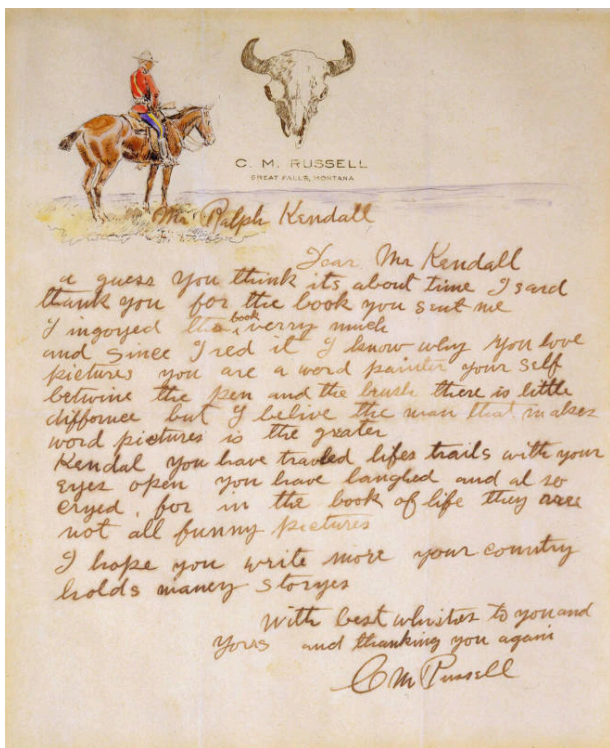 C. M. RUSSELL
GREAT FALLS, MONTANA
Mr Ralph Kendall
Dear Mr Kendall
a guess you think its about time I sard
thank you for the book you sent me
I ingoyed the book verry much
and since I red it I know why you love
pictures you are a word painter your self
betwine the pen and the brush there is little
differnce but I belive the man that makes
word pictures is the grater
Kendal you have traveled lifes trails with your
eyes open you have laughed and al so
cryed, for in the book of life they are
not all funny pictures
I hope you write more your country
holds maney storyes
With best whishes to you and
yours and thanking you again
C M Russell